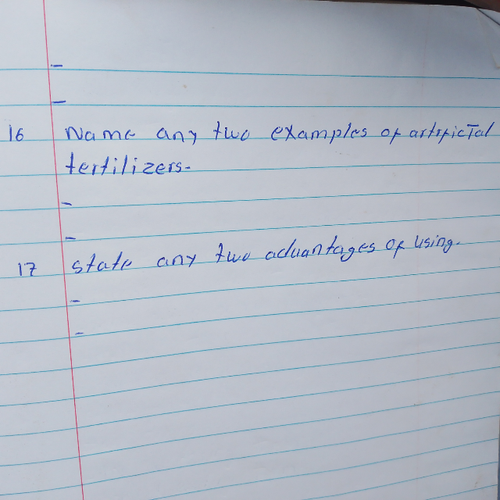 -
-
16 Name any two examples of artificial
fertilizers.
-
-
17 state any two advantages of using.
-
-